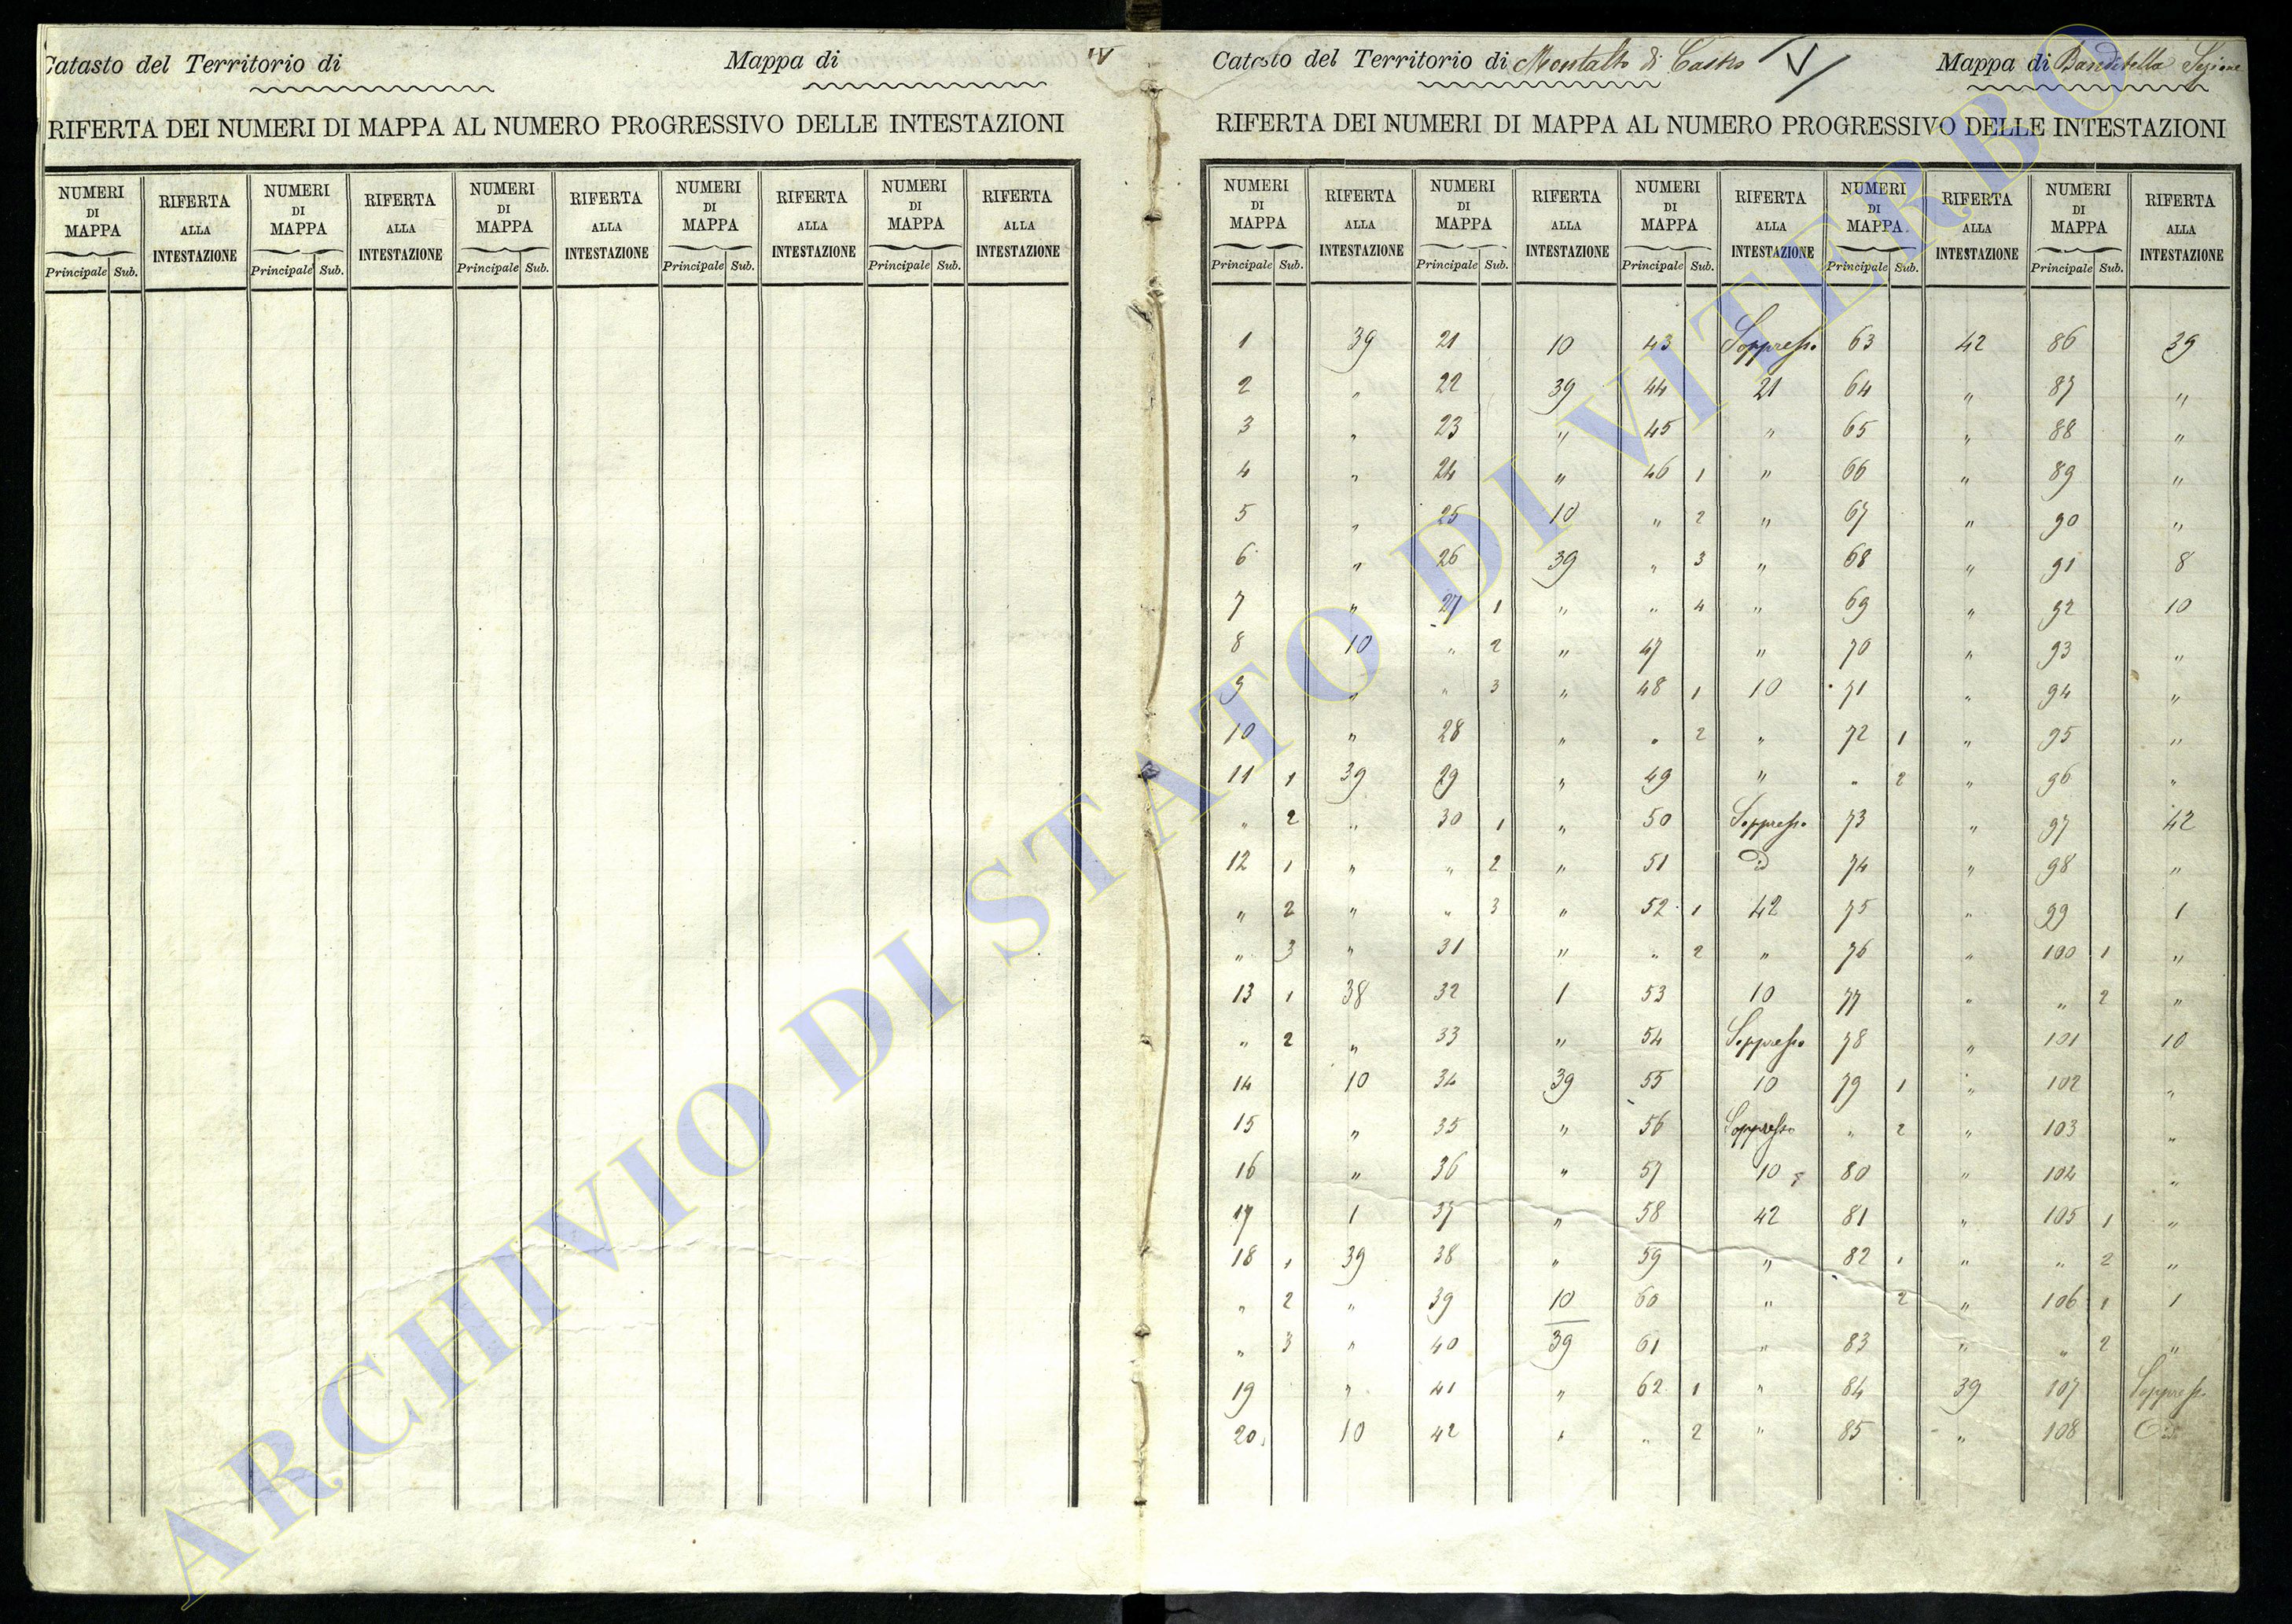 Catasto del Territorio di Mappa di IV
RIFERTA DEI NUMERI DI MAPPA AL NUMERO PROGRESSIVO DELLE INTESTAZIONI
NUMERI DI MAPPA RIFERTA ALLA INTESTAZIONE NUMERI DI MAPPA RIFERTA ALLA INTESTAZIONE NUMERI DI MAPPA RIFERTA ALLA INTESTAZIONE NUMERI DI MAPPA RIFERTA ALLA INTESTAZIONE NUMERI DI MAPPA RIFERTA ALLA INTESTAZIONE
Principale Sub. Principale Sub. Principale Sub. Principale Sub. Principale Sub.
Catasto del Territorio di Montalto di Castro V Mappa di Banditella Sezione
RIFERTA DEI NUMERI DI MAPPA AL NUMERO PROGRESSIVO DELLE INTESTAZIONI
NUMERI DI MAPPA RIFERTA ALLA INTESTAZIONE NUMERI DI MAPPA RIFERTA ALLA INTESTAZIONE NUMERI DI MAPPA RIFERTA ALLA INTESTAZIONE NUMERI DI MAPPA RIFERTA ALLA INTESTAZIONE NUMERI DI MAPPA RIFERTA ALLA INTESTAZIONE
Principale Sub. Principale Sub. Principale Sub. Principale Sub. Principale Sub.
1 39 21 10 43 Soppresso 63 42 86 39
2 " 22 39 44 21 64 " 87 "
3 " 23 " 45 " 65 " 88 "
4 " 24 " 46 1 " 66 " 89 "
5 " 25 10 " 2 " 67 " 90 "
6 " 26 39 " 3 " 68 " 91 8
7 " 27 1 " " 4 " 69 " 92 10
8 10 " 2 " 47 " 70 " 93 "
9 " " 3 " 48 1 10 71 " 94 "
10 " 28 " " 2 " 72 1 " 95 "
11 1 39 29 " 49 " " 2 " 96 "
" 2 " 30 1 " 50 Soppresso 73 " 97 42
12 1 " " 2 " 51 id 74 " 98 "
" 2 " " 3 " 52 1 42 75 " 99 1
" 3 " 31 " " 2 " 76 " 100 1 "
13 1 38 32 1 53 10 77 " " 2 "
" 2 " 33 " 54 Soppresso 78 " 101 10
14 10 34 39 55 10 79 1 " 102 "
15 " 35 " 56 Soppresso " 2 " 103 "
16 " 36 " 57 10 80 " 104 "
17 1 37 " 58 42 81 " 105 1 "
18 1 39 38 " 59 " 82 1 " " 2 "
" 2 " 39 10 60 " 2 " 106 1 1
" 3 " 40 39 61 " 83 " " 2 "
19 " 41 " 62 1 " 84 39 107 Soppresso
20 10 42 " " 2 " 85 " 108 id
ARCHIVIO DI STATO DI VITERBO